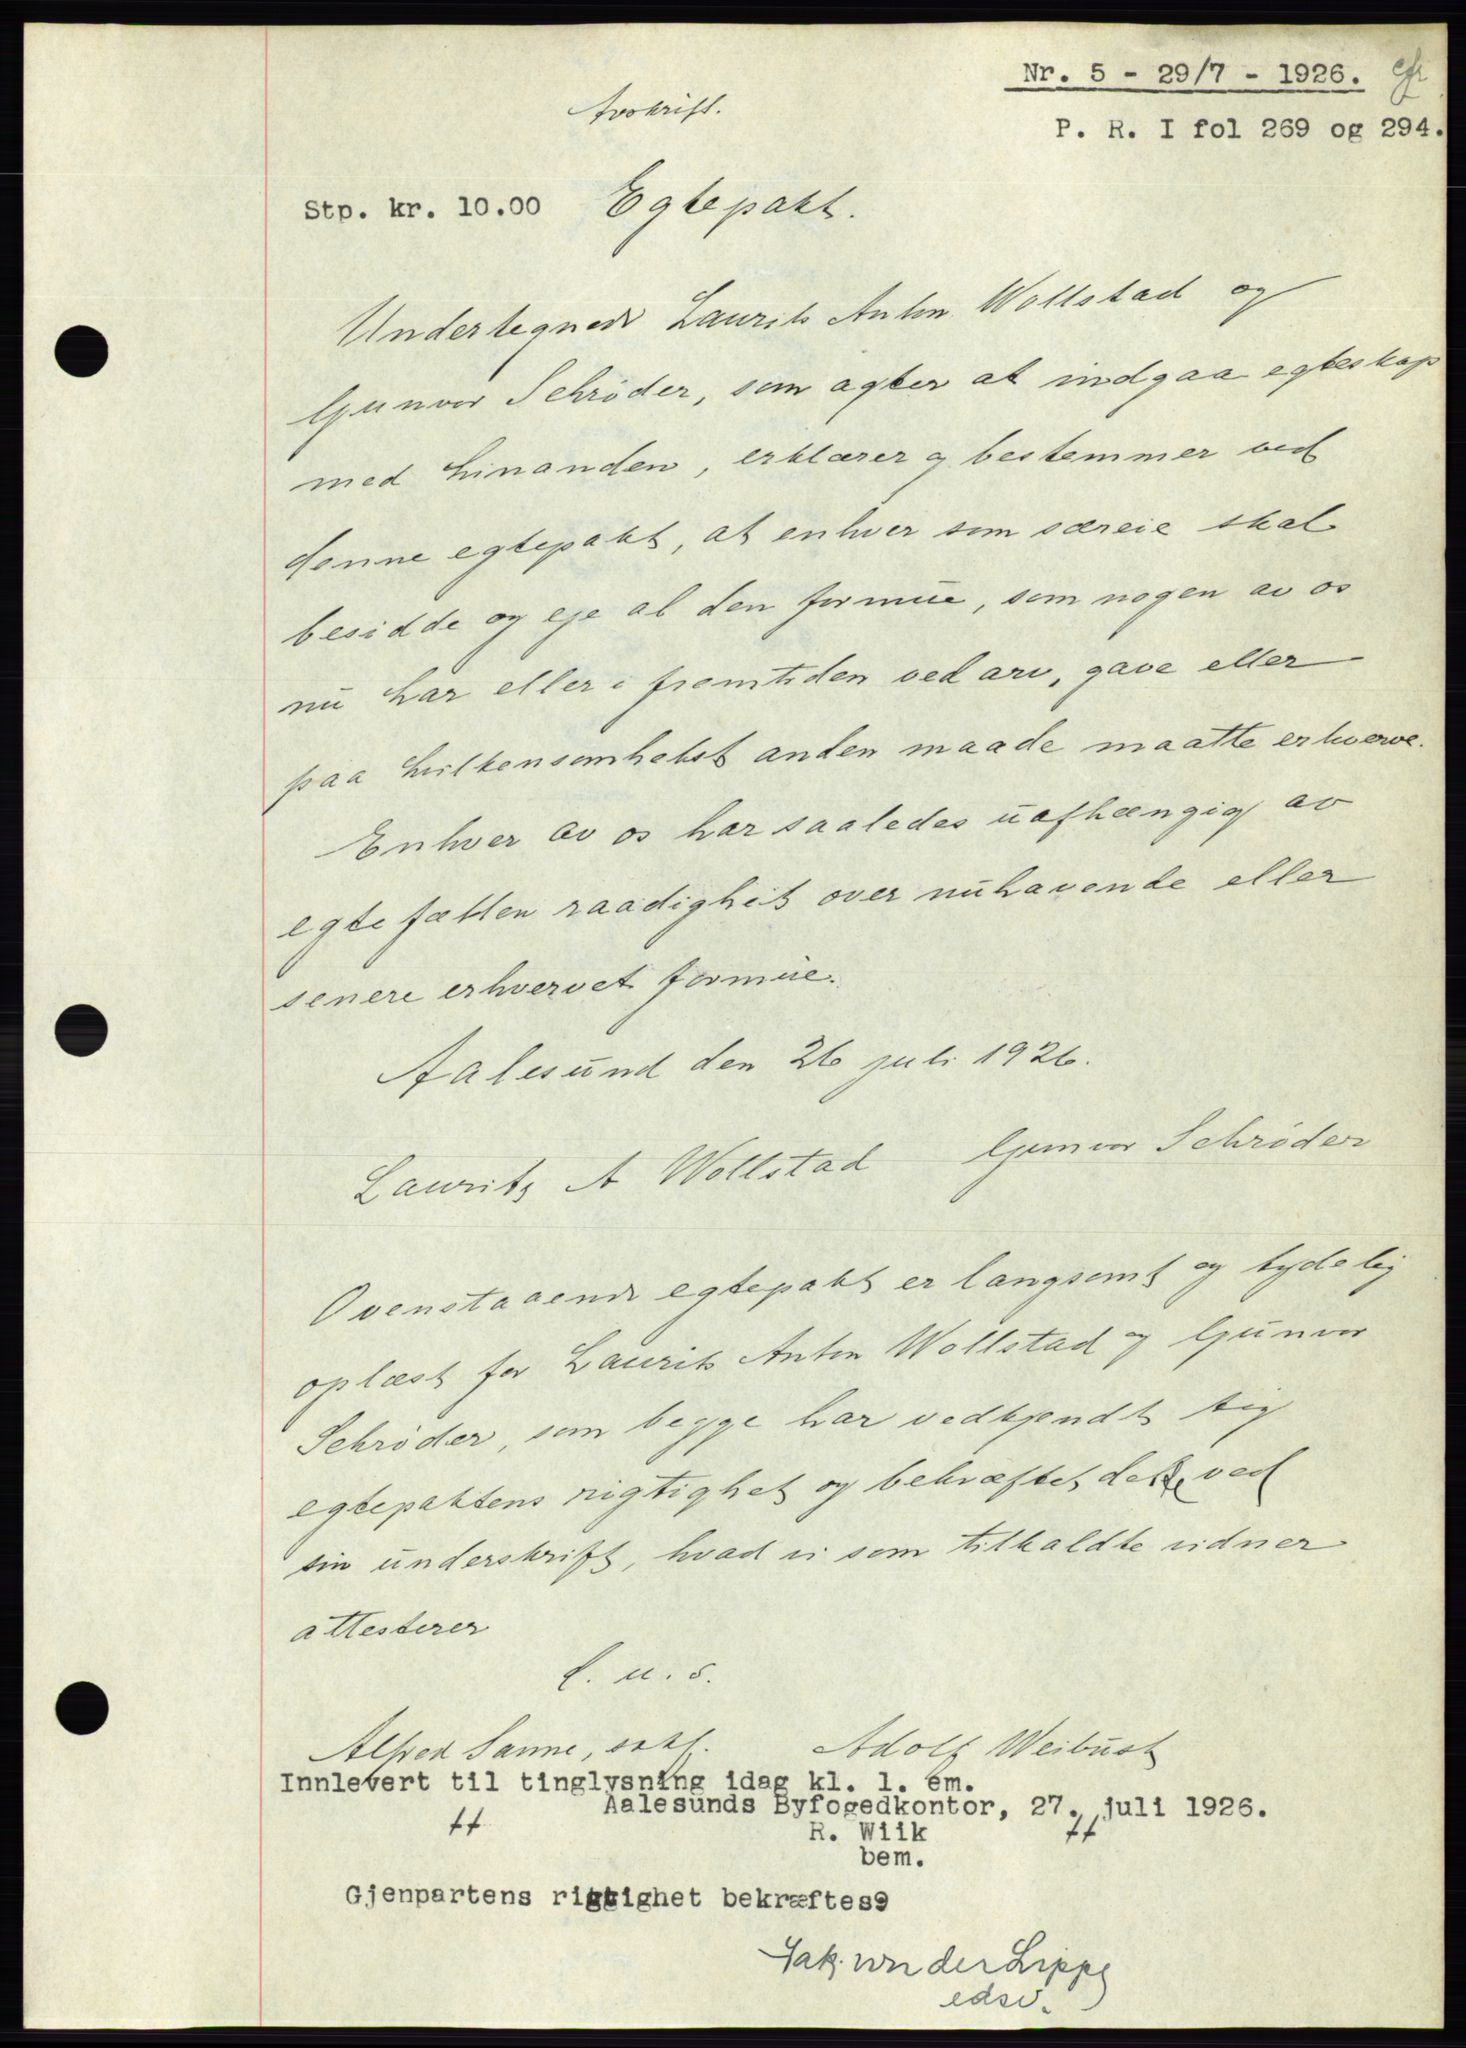 Nr. 5 - 29/7 - 1926. Cfr
Avskrift.
P. R. I fol 269 og 294.
Stp. kr. 10.00 Egtepakt.
Undertegnede Laurits Anton Wollstad og
Gunvor Schrøder, som agter at indgaa egteskap
med hinanden, erklærer og bestemmer ved
denne egtepakt, at enhver som særeie skal
besidde og eje al den formue, som nogen av os
nu har eller i fremtiden ved arv, gave eller
paa hvilkensomhelst anden maade maatte erhverve.
Enhver av os har saaledes uafhængig av
egtefællen raadighet over nuhavende eller
senere erhvervet formue.
Aalesund den 26 juli 1926.
Laurits A Wollstad Gunvor Schrøder
Ovenstaaende egtepakt er langsomt og tydelig
oplæst for Laurits Anton Wollstad og Gunvor
Schrøder, som begge har vedkjendt sig
egtepaktens rigtighet og bekræftet dette ved
sin underskrift, hvad vi som tilkaldte vidner
attesterer
d. u. s.
Alfred Sanne, sakf. Adolf Weibust
Innlevert til tinglysning idag kl. 1. em.
Aalesunds Byfogedkontor, 27. juli 1926.
R. Wiik
bem.
Gjenpartens rigtighet bekræftes9
Jak. von der Lippe
edsv.